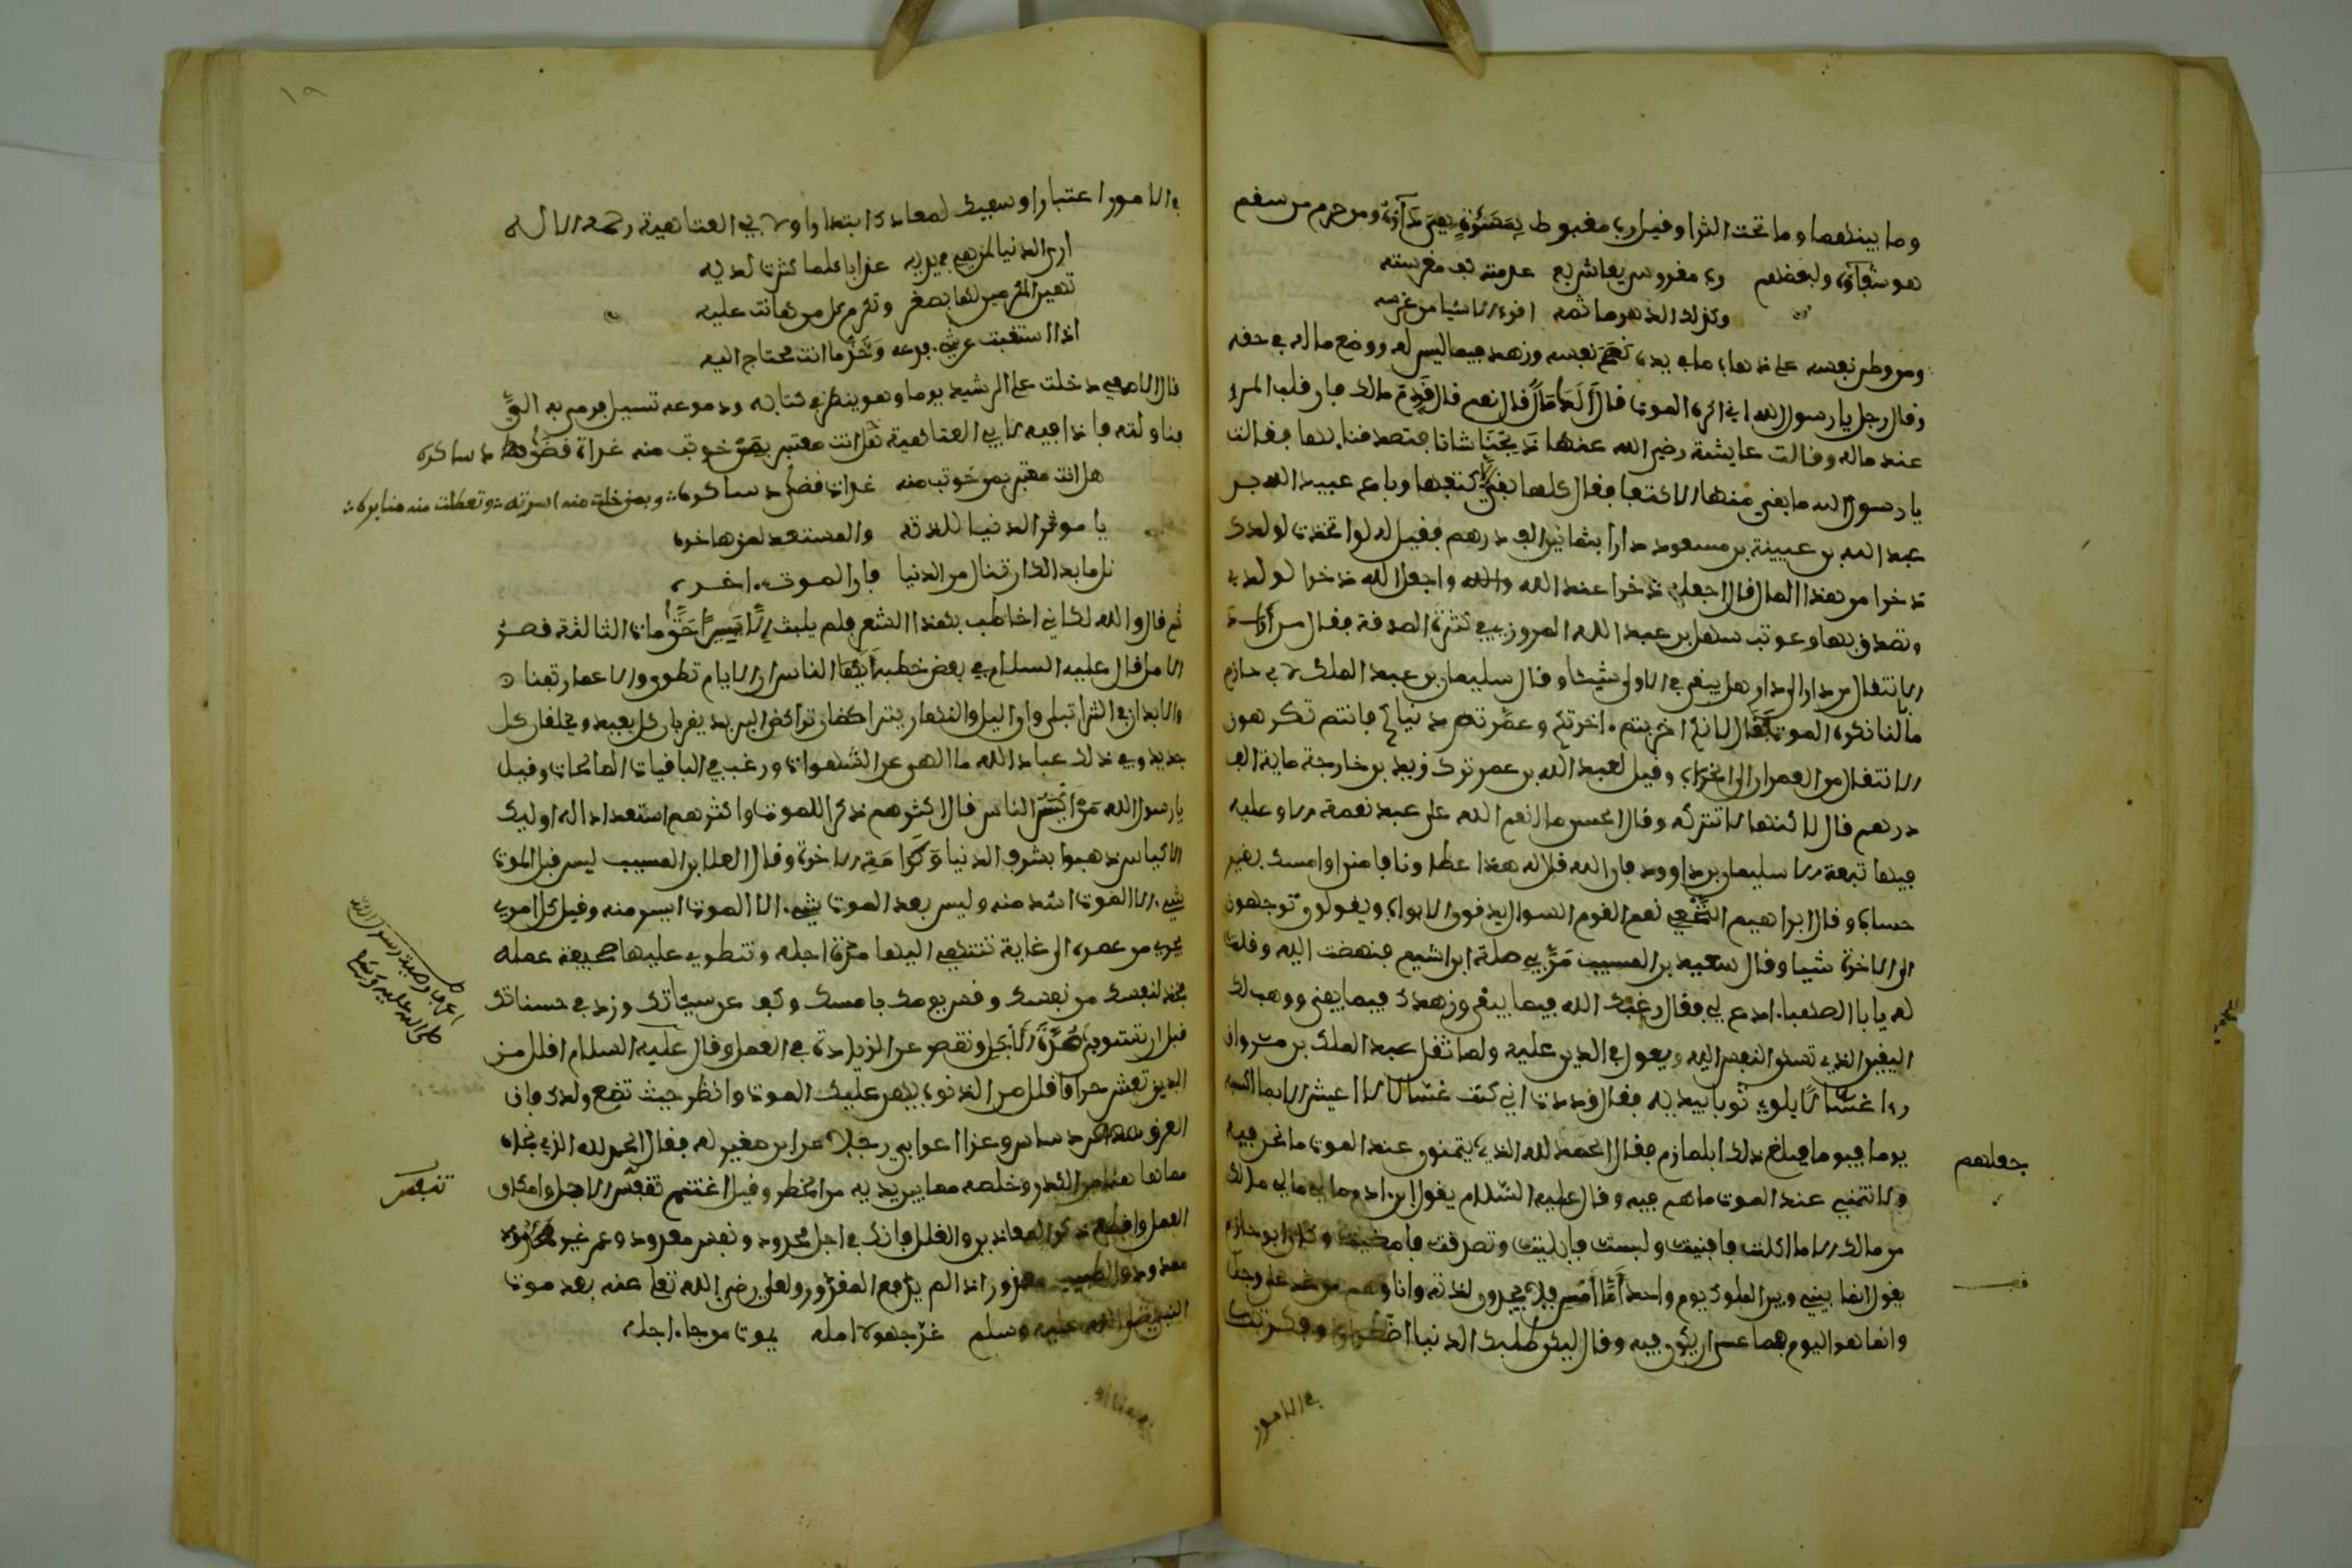 وما بينهما وما تحت الثرا وقيل رب مغبوط بمسرة هي داؤه ومرحوم من سقم
هو شفاؤه ولبعضهم رب مغروس يعاش به عدمته كف مغترسه
وكذاك الدهر ماتمه اقرب الاشيا من عرسه
ومن وطن نفسه على ذهاب ما في يده نعم نفسه وزهد فيما ليس له ووضع ماله في حقه
وقال رجل يا رسول الله اني اكره الموت قال ألك مال قال نعم قال قدم مالك فان قلب المرء
عند ماله وقالت عايشة رضي الله عنها ذبحنا شاتا فتصدقنا بها فقالت
يا رسول الله ما بقي منها الا كتفها فقال كلها بقي الا كتفها وباع عبيد الله بن
عبد الله بن عيينة بن مسعود دارا بثمانين الف درهم فقيل له لو اتخذت لولدك
ذخرا من هذا المال قال اجعله ذخرا عند الله واجعل الله ذخرا لولدي
وتصدق بها وعوتب سهل بن عبد الله المروزي في كثرة الصدقة فقال من أراد
الانتقال من دار الى دار هل يبقي في الاولى شيئا وقال سليمان بن عبد الملك لابي حازم
ما لنا نكره الموت فقال لانكم اخربتم اخرتكم وعمرتم دنياكم فانتم تكرهون
الانتقال من العمران الى الخراب وقيل لعبد الله بن عمر ترك زيد بن خارجة ماية الف
درهم قال لاكنها لا تتركه وقال الحسن ما انعم الله على عبد نعمة الا وعليه
فيها تبعة الا سليمان بن داوود فان الله قال له هذا عطاونا فامنن او امسك بغير
حساب وقال ابراهيم النخعي نعم القوم السوال يدقون الابواب ويقولون توجهون
الى الاخرة شيا وقال سعيد بن المسيب مر بي صلة ابن اشيم فنهضت اليه وقلت
له يابا الصهبا ادع لي فقال رغبك الله فيما يبقى وزهدك فيما يفنى ووهب لك
اليقين الذي تسكن النفس اليه ويعول في الدين عليه ولما ثقل عبد الملك بن مروان
را غسالا يلوي ثوبا بيديه فقال وددت اني كنت غسالا لا اعيش الا بما اكتسبه
يوما فيوما فبلغ ذلك ابا حازم فقال الحمد لله الذي يتمنون عند الموت ما نحن فيه
ولا نتمني عند الموت ما هم فيه وقال عليه السلام يقول ابن ادم مالي مالي ما لك
من مالك الا ما اكلت فافنيت ولبست فابليت وتصدقت فامضيت وكان ابو حازم
يقول انما بيني وبين الملوك يوم واحد أما أمس فلا يجدون لذته وانا وهم من غد على وجل
وانما هو اليوم فما عسى ان يكون فيه وقال ليكن طلبك الدنيا اضطرارا وفكرتك
جعلهم
في الامور
في الامور اعتبارا وسعيك لمعادك ابتدارا ولابي العتاهية رحمه الله
ارى الدنيا لمن هي في يديه عذابا كلما كثرت لديه
تهين المكرمين لها بصغر وتكرم كل من هانت عليه
اذا استغنيت عن شيء فدعه وخذ ما انت محتاج اليه
قال الاصمعي دخلت على الرشيد يوما وهو ينظر في كتابه ودموعه تسيل فرمى به الي
فناولته فاذا فيه لابي العتاهية هل انت معتبر بمن خوت منه غداة قضى دساكره
هل انت معتبر بمن خوت منه غداة قضى دساكره وبمن خلت منه اسرته وتعطلت منه منابره
يا موثر الدنيا للذته والمستعد لمن يفاخره
نل ما بدا لك ان تنال من الدنيا فان الموت اخره
ثم قال والله لكاني اخاطب بهذا الشعر فلم يلبث الا يسيرا حتى مات الثالثة قصر
الامل قال عليه السلام في بعض خطبه أيها الناس ان الايام تطوى والاعمار تفنا
والابدان في الثرا تبلى وان الليل والنهار يتراكضان تراكض البريد يقربان كل بعيد ويخلقان كل
جديد وفي ذلك عباد الله ما الهى عن الشهوات ورغب في الباقيات الصالحات وقيل
يا رسول الله من أكيس الناس قال اكثرهم ذكرا للموت واكثرهم استعدادا له اوليك
الاكياس ذهبوا بشرف الدنيا وكرامة الاخرة وقال العلا بن المسيب ليس قبل الموت
شيء الا الموت اشد منه وليس بعد الموت شيء الا الموت ايسر منه وقيل كل امرئ
يجري من عمره الى غاية تنتهي اليها مدة اجله وتنطوي عليها صحيفة عمله
فخذ لنفسك من نفسك وقس يومك بامسك وكف عن سيئاتك وزد في حسناتك
قبل ان تستوفي مدة الأجل وتقصر عن الزيادة في العمل وقال عليه السلام اقلل من
الدين تعش حرا واقلل من الذنوب يهن عليك الموت وانظر حيث تضع ولدك فان
العرق دساس وعزا اعرابي رجلا عن ابن صغير له فقال الحمد لله الذي نجاه
مما ها هنا من الكدر وخلصه مما بين يديه من الخطر وقيل اغتنم تنفس الاجل وامكان
العمل واقطع ذكر المعاذير والعلل فانك في اجل محدود ونفس معدود وعمر غير ممدود
والطبيب معذور اذا لم يدفع المقدور ولعلي رضي الله تعا عنه بعد موت
النبي صلى الله عليه وسلم غر جهولا امله يموت من جا اجله
اعرف وصية رسول الله
صلى الله عليه وسلم
تنفس
١٩